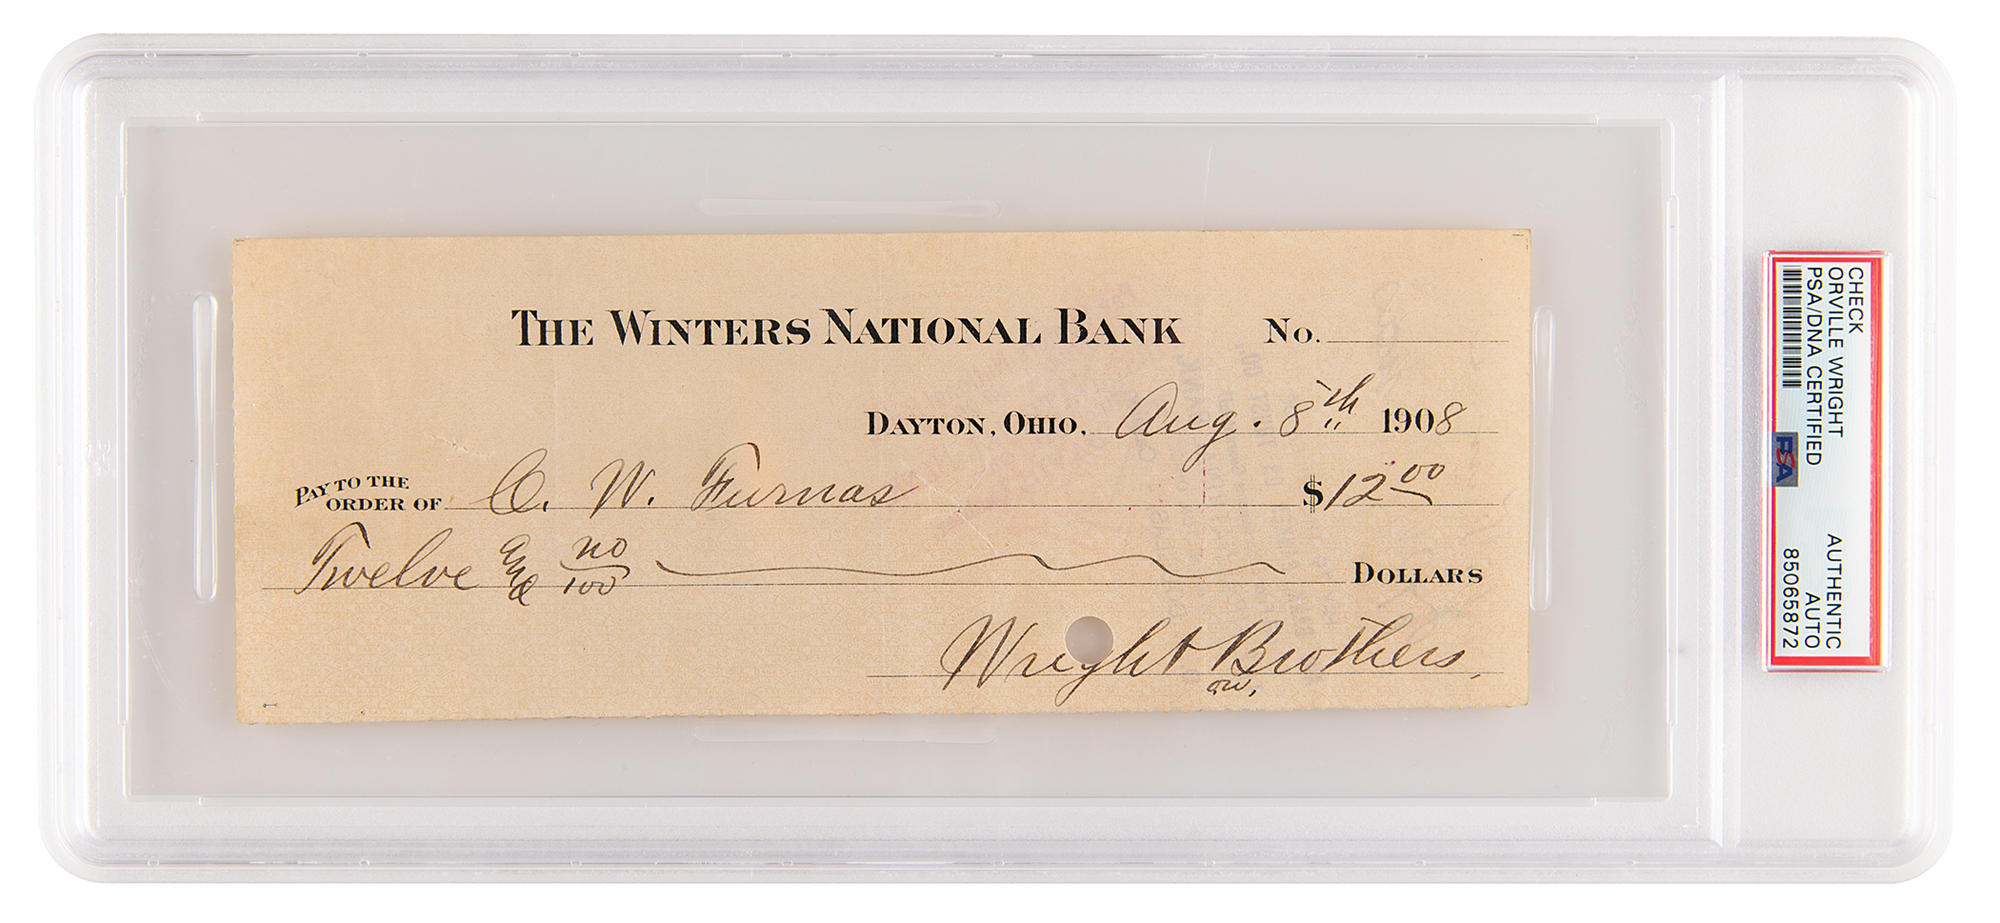 THE WINTERS NATIONAL BANK No.
DAYTON, OHIO, Aug. 8th 1908
PAY TO THE
ORDER OF C. W. Furnas $12 00
Twelve & no/100 DOLLARS
Wright Brothers,
O.W.
CHECK
ORVILLE WRIGHT
PSA/DNA CERTIFIED
PSA
AUTHENTIC
AUTO
85065872